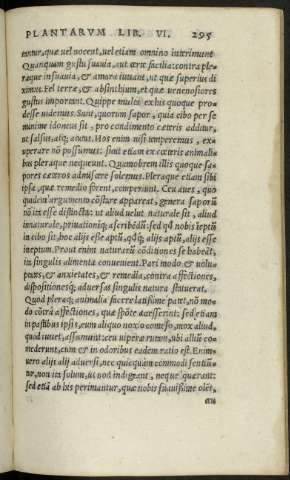 PLANTARVM LIB. VI. 295
untur, quæ uel nocent, uel etiam omnino interimunt.
Quanquam gustu suauia, aut certe facilia: contra ple-
raque insuauia, & amara iuuant, ut quæ superius di
ximus. Fel terræ, & absinthium, et quæ uenenosiores
gustus important. Quippe multa ex his quoque pro-
desse uidemus. Sunt, quorum sapor, quia cibo per se
minime idoneus sit, pro condimento cæteris additur,
ut salsus, atq; acutus. Hos enim nisi temperemus, ex-
uperare nō possumus: sint etiam ex cæteris animali-
bus pleraque nequeunt. Quamobrem illis quoque sa-
pores cæteros admiscere solemus. Pleraque etiam sibi
ipsa, quæ remedio forent, comperiunt. Ceu aues, quo
quidem argumento cōstare appareat, genera saporū
nō ita esse distincta: ut aliud uelut naturale sit, aliud
innaturale, priuationiq; ascribēdū: sed qd nobis ineptū
in cibo sit, hoc alijs esse aptū, qdq; alijs aptū, alijs esse
ineptum. Prout enim naturarū cōditiones se habeāt,
ita singulis alimenta conuenient. Pari modo & uolu-
ptates, & anxietates, & remedia, contra affectiones,
dispositionesq; aduersas singulis natura statuerat.
Quod pleraq; animalia facere latissime patet, nō mo-
do cōtrà affectiones, quæ spōte accesserint: sed etiam
in pastibus ipsis, cum aliquo noxio comeso, mox aliud,
quod iuuet, assumunt: ceu uiperæ rutam, ubi allium co-
mederunt, cum & in odoribus eadem ratio est. Enim-
uero alijs alij aduersi, nec quicquam commodi sentiū-
tur, non ita solum, ut non indigeant, neque quærant:
sed etiā ab ijs perimantur, quæ nobis suauissime olēt,